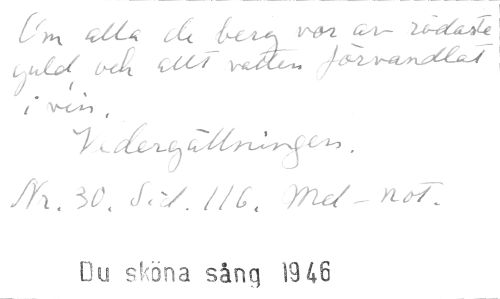 Om alla de berg vor av rödaste
guld, och allt vatten förvandlat
i vin.
Vedergällningen.
Nr. 30. Sid. 116. Mel-not.
Du sköna sång 1946